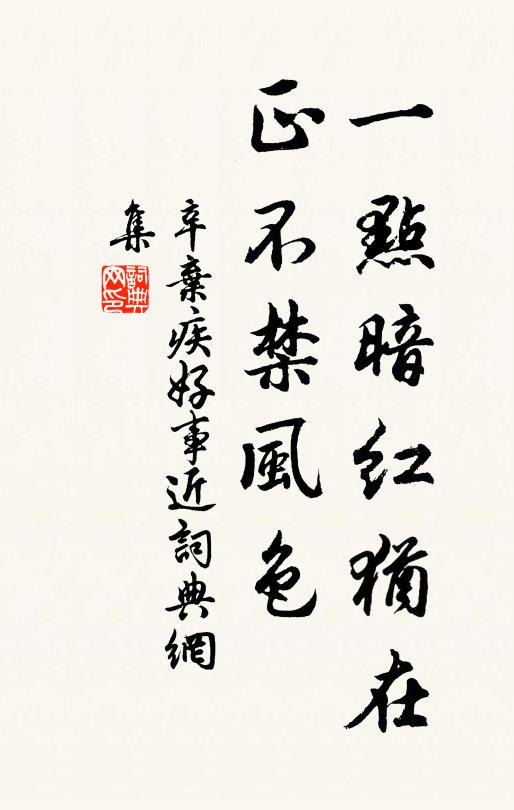 一點暗紅猶在
正不禁風色
辛棄疾好事近詞典網
集
詞典网印